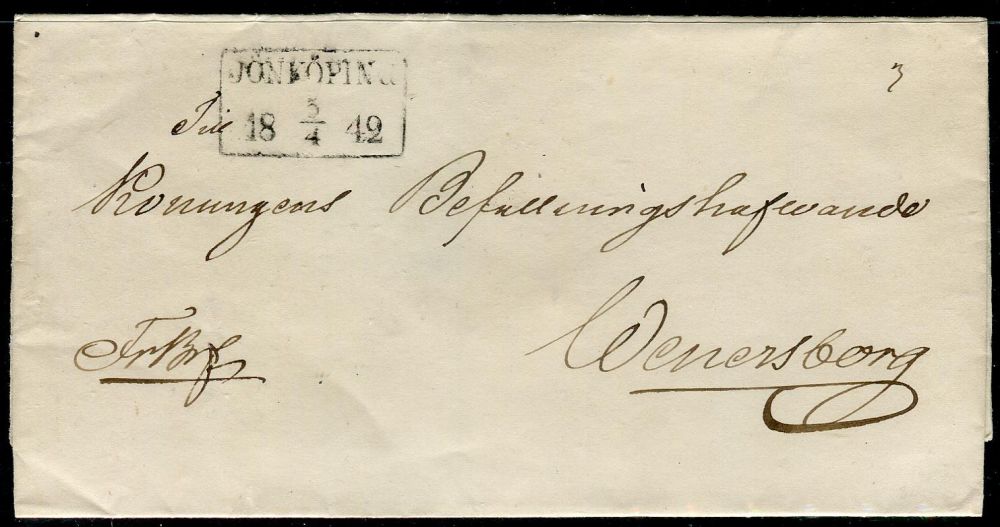 JÖNKÖPING
18 5/4 42
3
Till
Konungens Befallningshafwande
Wenersborg
FrBrf